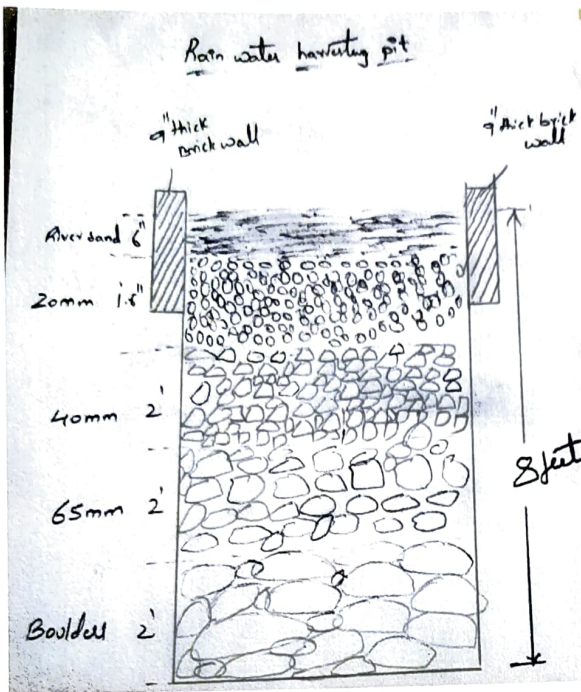 Rain water harvesting pit
9" thick
Brick wall
9" thick brick
wall
River sand 6"
20mm 1.6"
40mm 2'
65mm 2'
8 feet
Boulders 2'